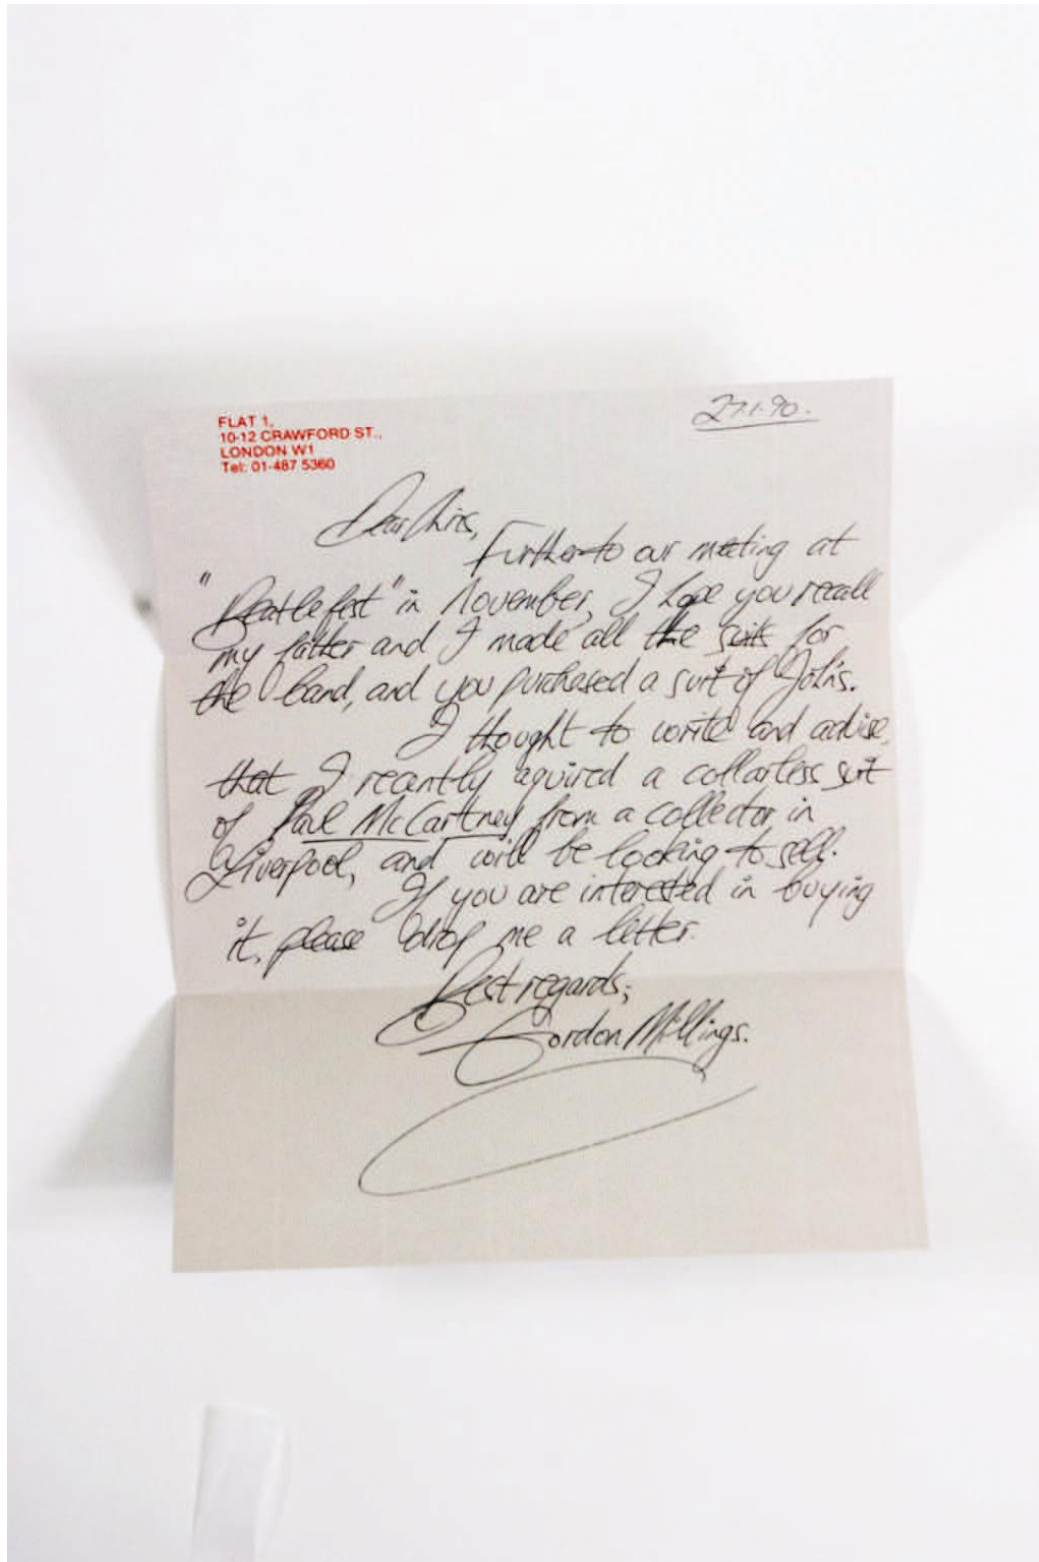 FLAT 1,
10-12 CRAWFORD ST.,
LONDON W1
Tel: 01-487 5360
27.1.90.
Dear Chris,
Further to our meeting at
"Beatlefest" in November, I hope you recall
my father and I made all the suits for
the band, and you purchased a suit of John's.
I thought to write and advise,
that I recently aquired a collarless suit
of Paul McCartney from a collector in
Liverpool, and will be looking to sell.
If you are interested in buying
it, please drop me a letter.
Best regards,
Gordon Millings.